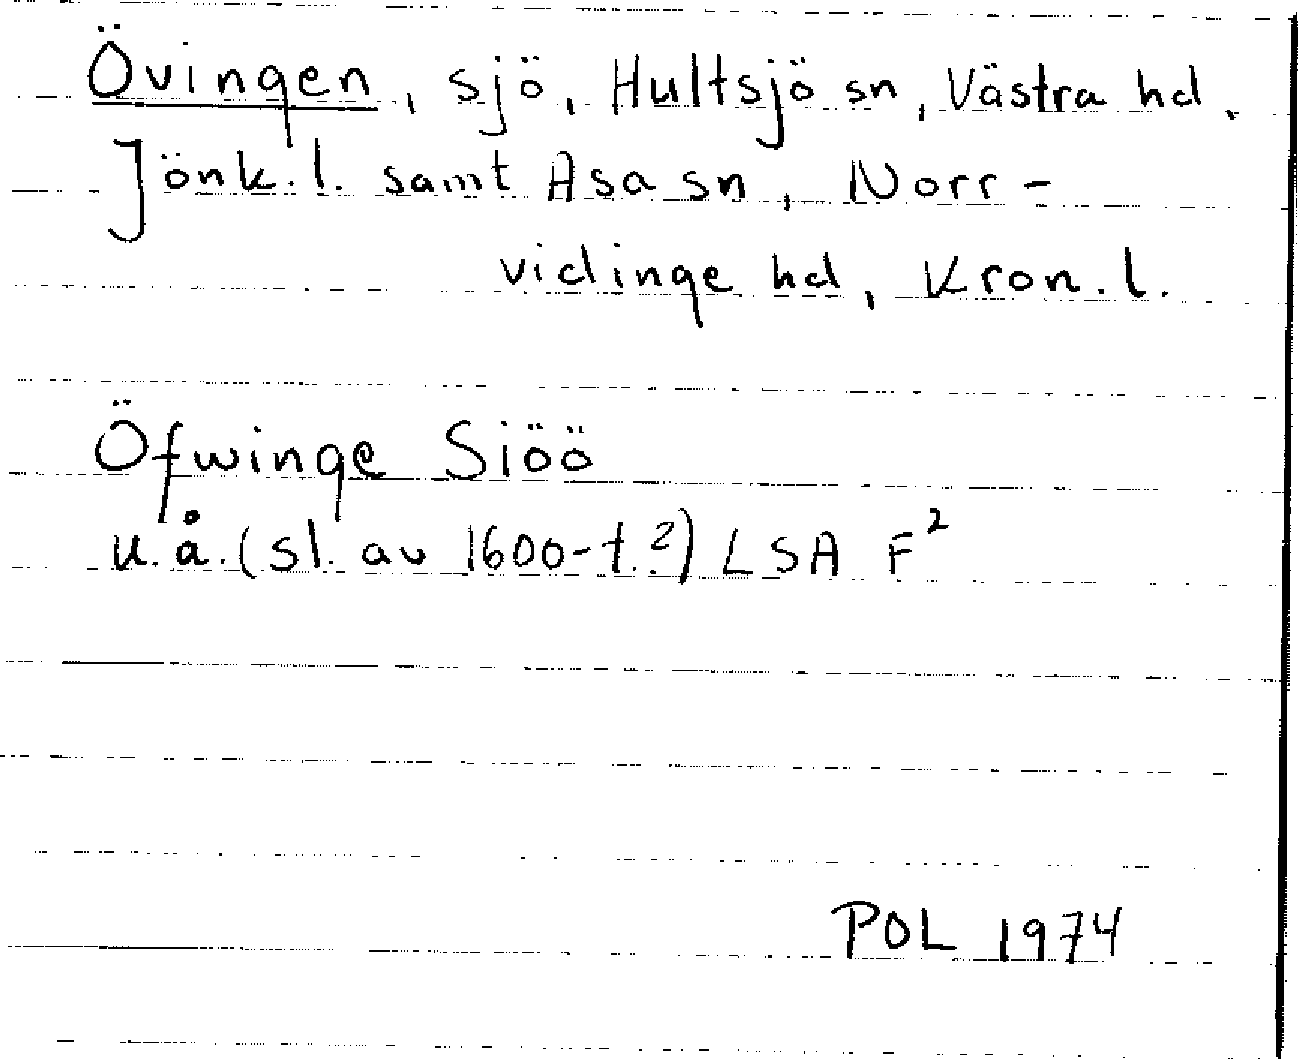 Övingen, sjö, Hultsjö sn, Västra hd.
Jönk.l. samt Asa sn, Norr-
vidinge hd, Kron.l.
Öfwinge Siöö
u.å. (sl. av 1600-t.?) LSA F²
POL 1974